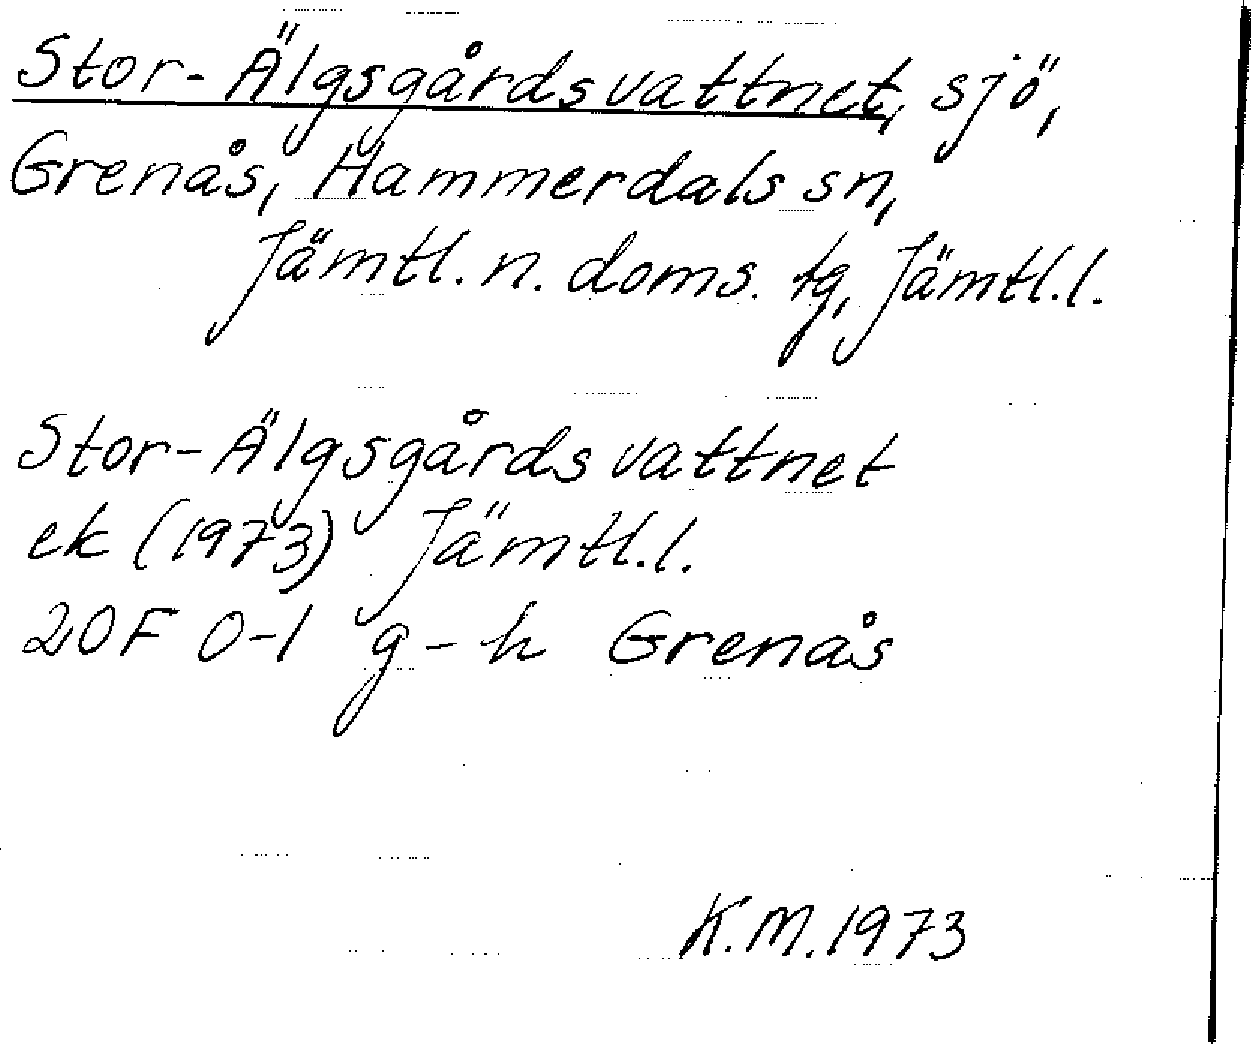 Stor-Älgsgårdsvattnet, sjö,
Grenås, Hammerdals sn,
Jämtl. n. doms. tg, Jämtl.l.
Stor-Älgsgårdsvattnet
ek (1973) Jämtl.l.
20F 0-1 g-h Grenås
K.M.1973